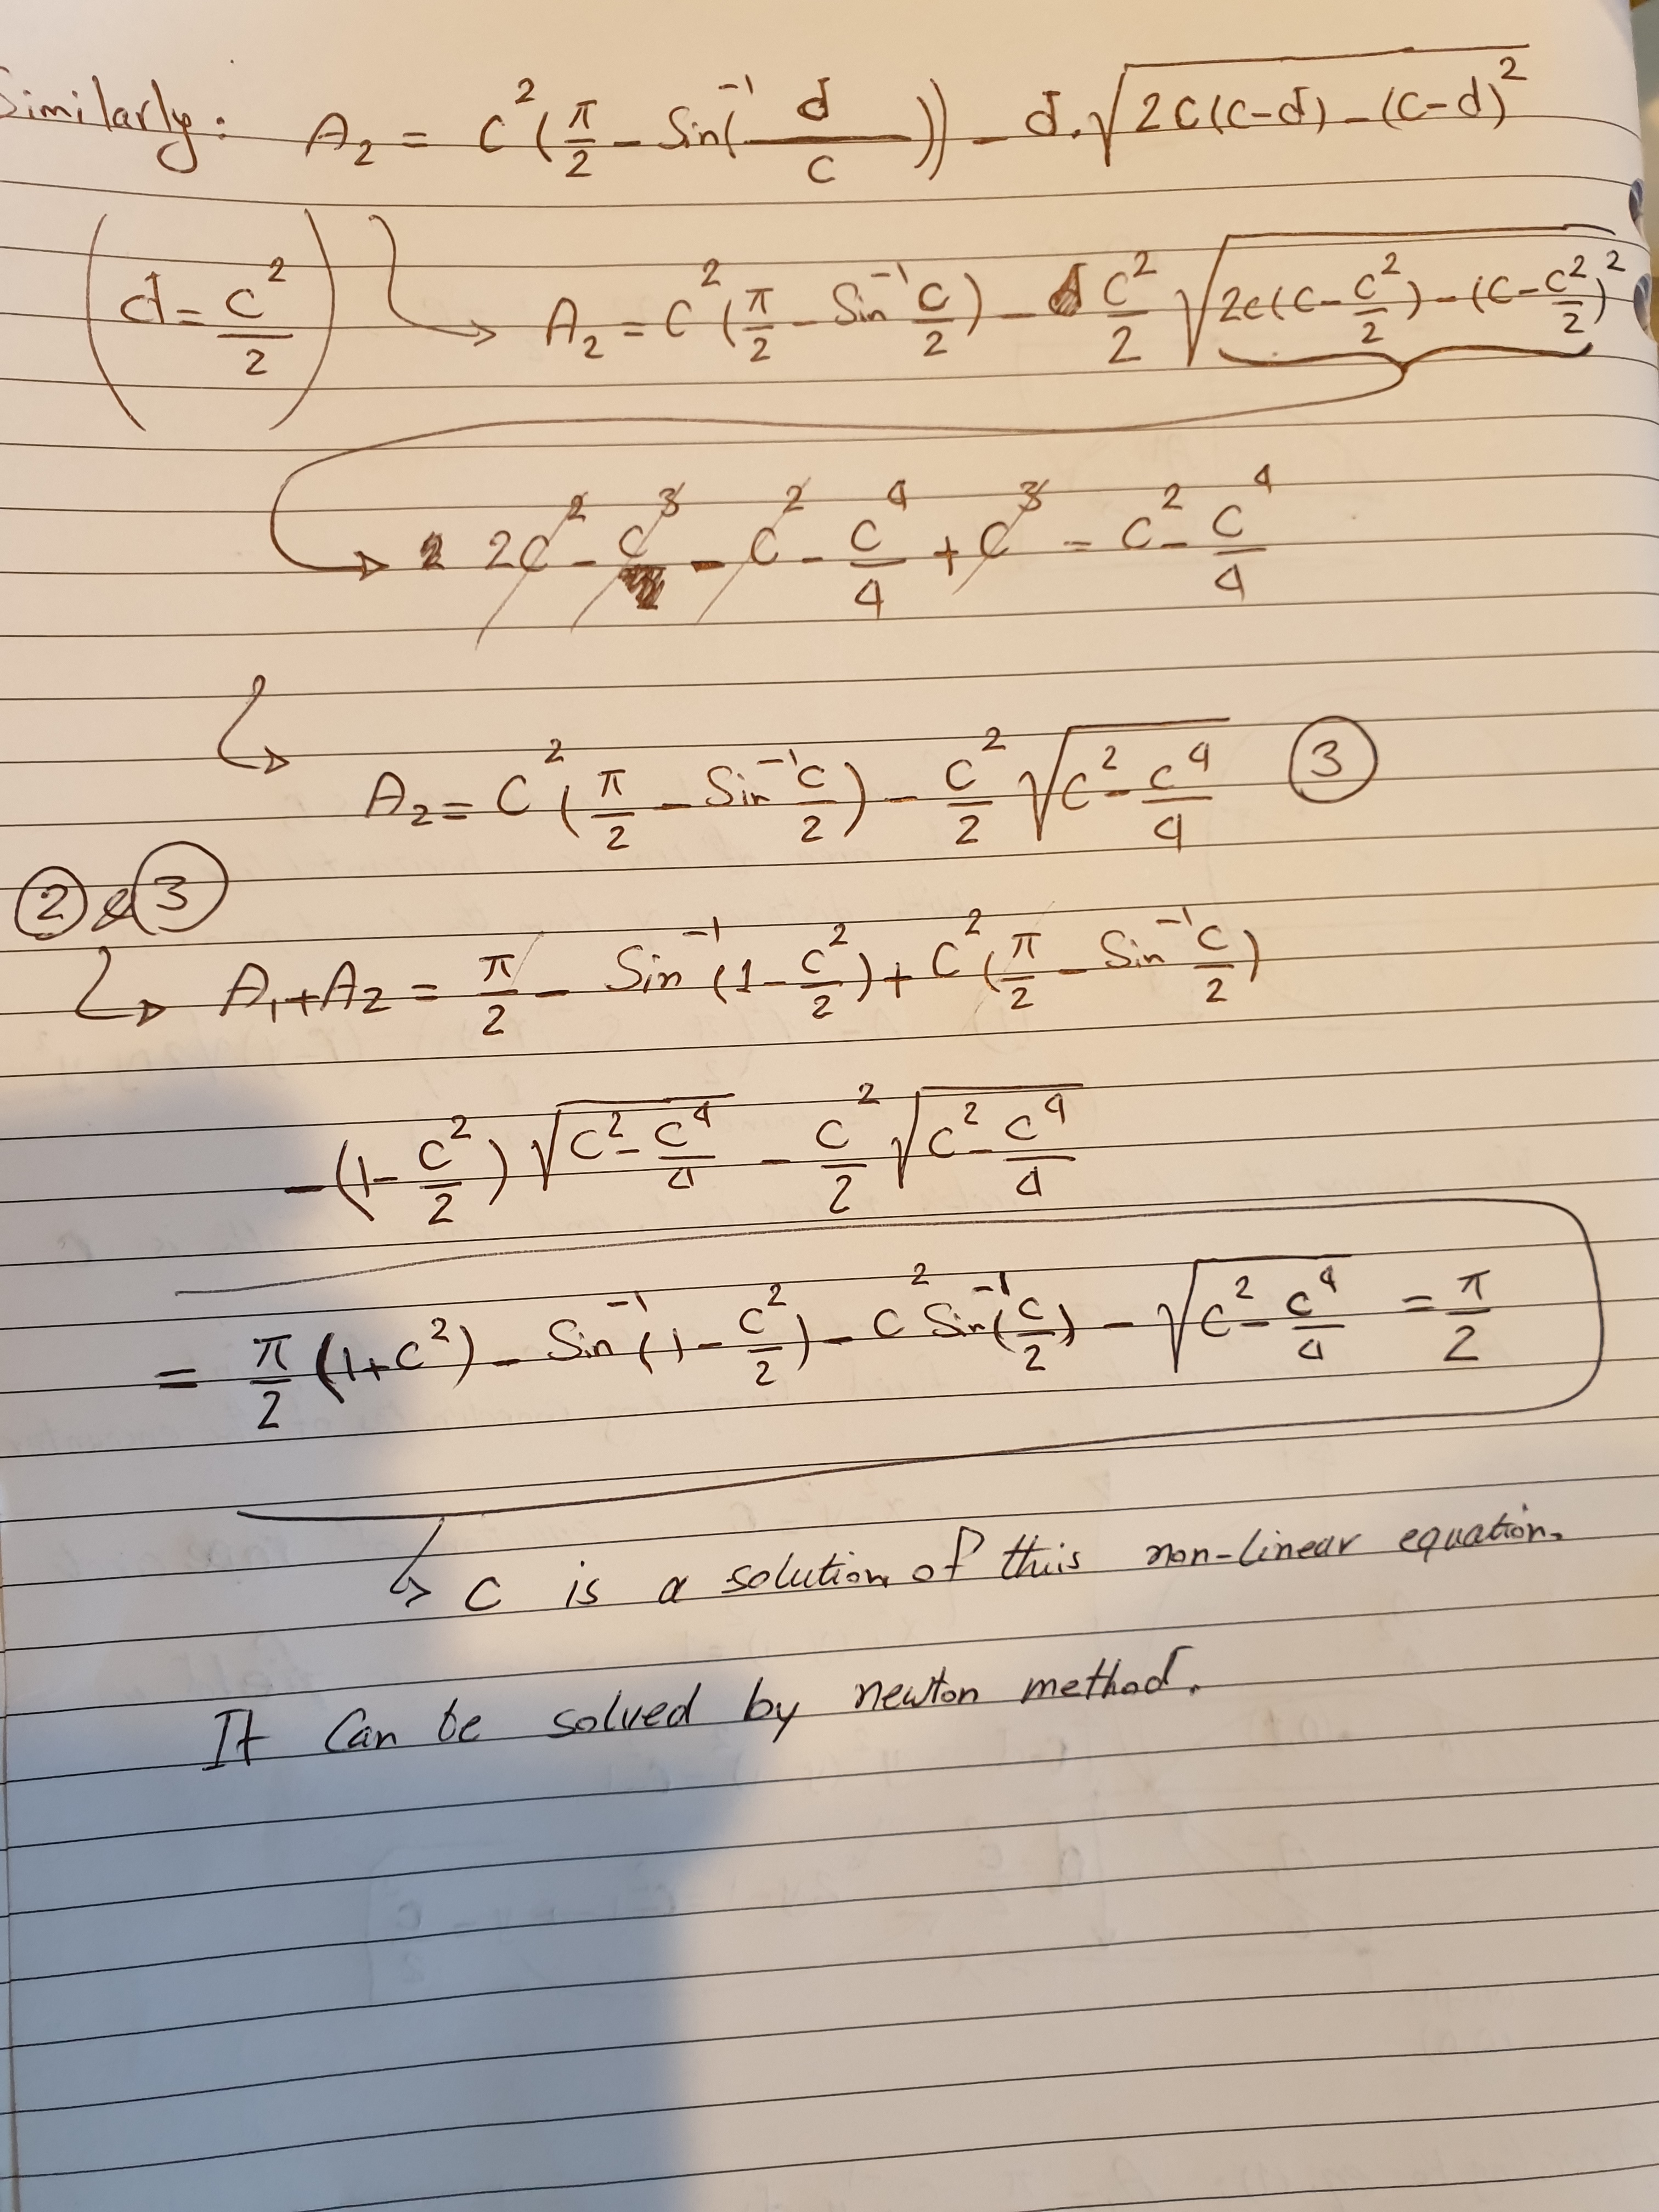 Similarly: A₂ = C²(π/2 - Sin⁻¹(d/C)) - d.√(2C(C-d) - (C-d)²)
(d = C²/2) → A₂ = C²(π/2 - Sin⁻¹ C/2) - C²/2 √(2C(C - C²/2) - (C - C²/2)²)
→ 2C² - C³ - C² - C⁴/4 + C³ = C² - C⁴/4
→ A₂ = C²(π/2 - Sin⁻¹ C/2) - C²/2 √(C² - C⁴/4) ③
② & ③
→ A₁+A₂ = π/2 - Sin⁻¹(1 - C²/2) + C²(π/2 - Sin⁻¹ C/2)
-(1 - C²/2) √(C² - C⁴/4) - C²/2 √(C² - C⁴/4)
= π/2 (1+C²) - Sin⁻¹(1 - C²/2) - C² Sin⁻¹(C/2) - √(C² - C⁴/4) = π/2
→ C is a solution of thiis non-linear equation.
It can be solved by newton method.